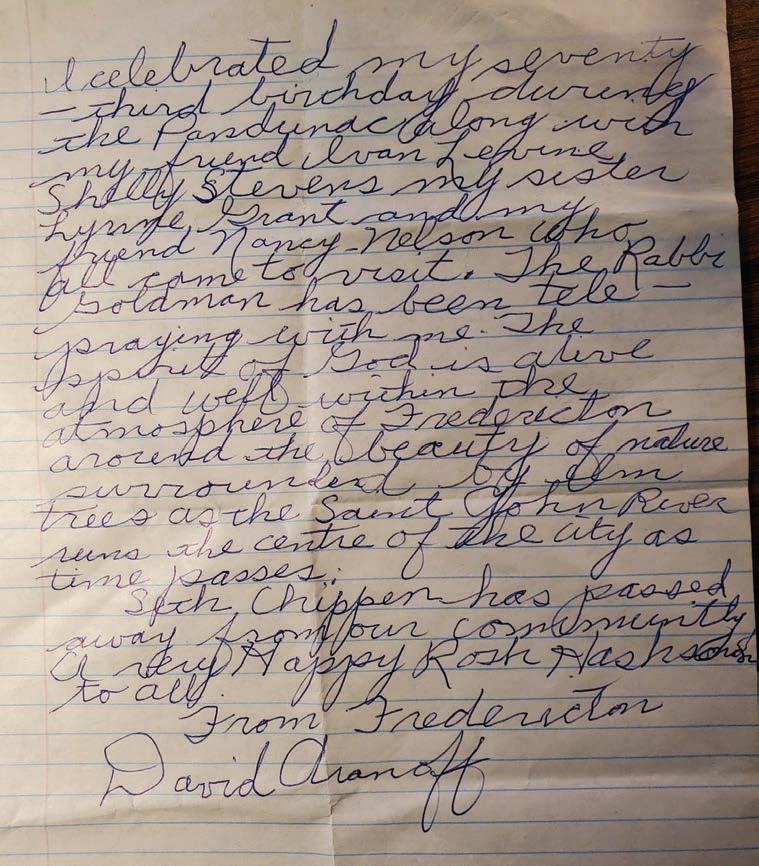 I celebrated my seventy
– third birthday during
the Pandunac along with
my friend Ivan Levine
Shelly Stevens my sister
Lynne Grant and my
friend Nancy Nelson who
all came to visit. The Rabbi
Goldman has been tele –
praying with me. The
spirit of God is alive
and well within the
atmosphere of Fredericton
around the beauty of nature
surrounded by elm
trees as the Saint John River
runs the centre of the city as
time passes.
Seth Chippen has passed
away from our community
A very Happy Rosh Hashsonah
to all.
From Fredericton
David Aranoff